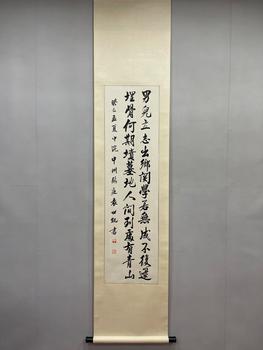 男兒立志出鄉関學若無成不復還
埋骨何期墳墓地人間到處有青山
癸巳孟夏中浣 中州 袁世紀書